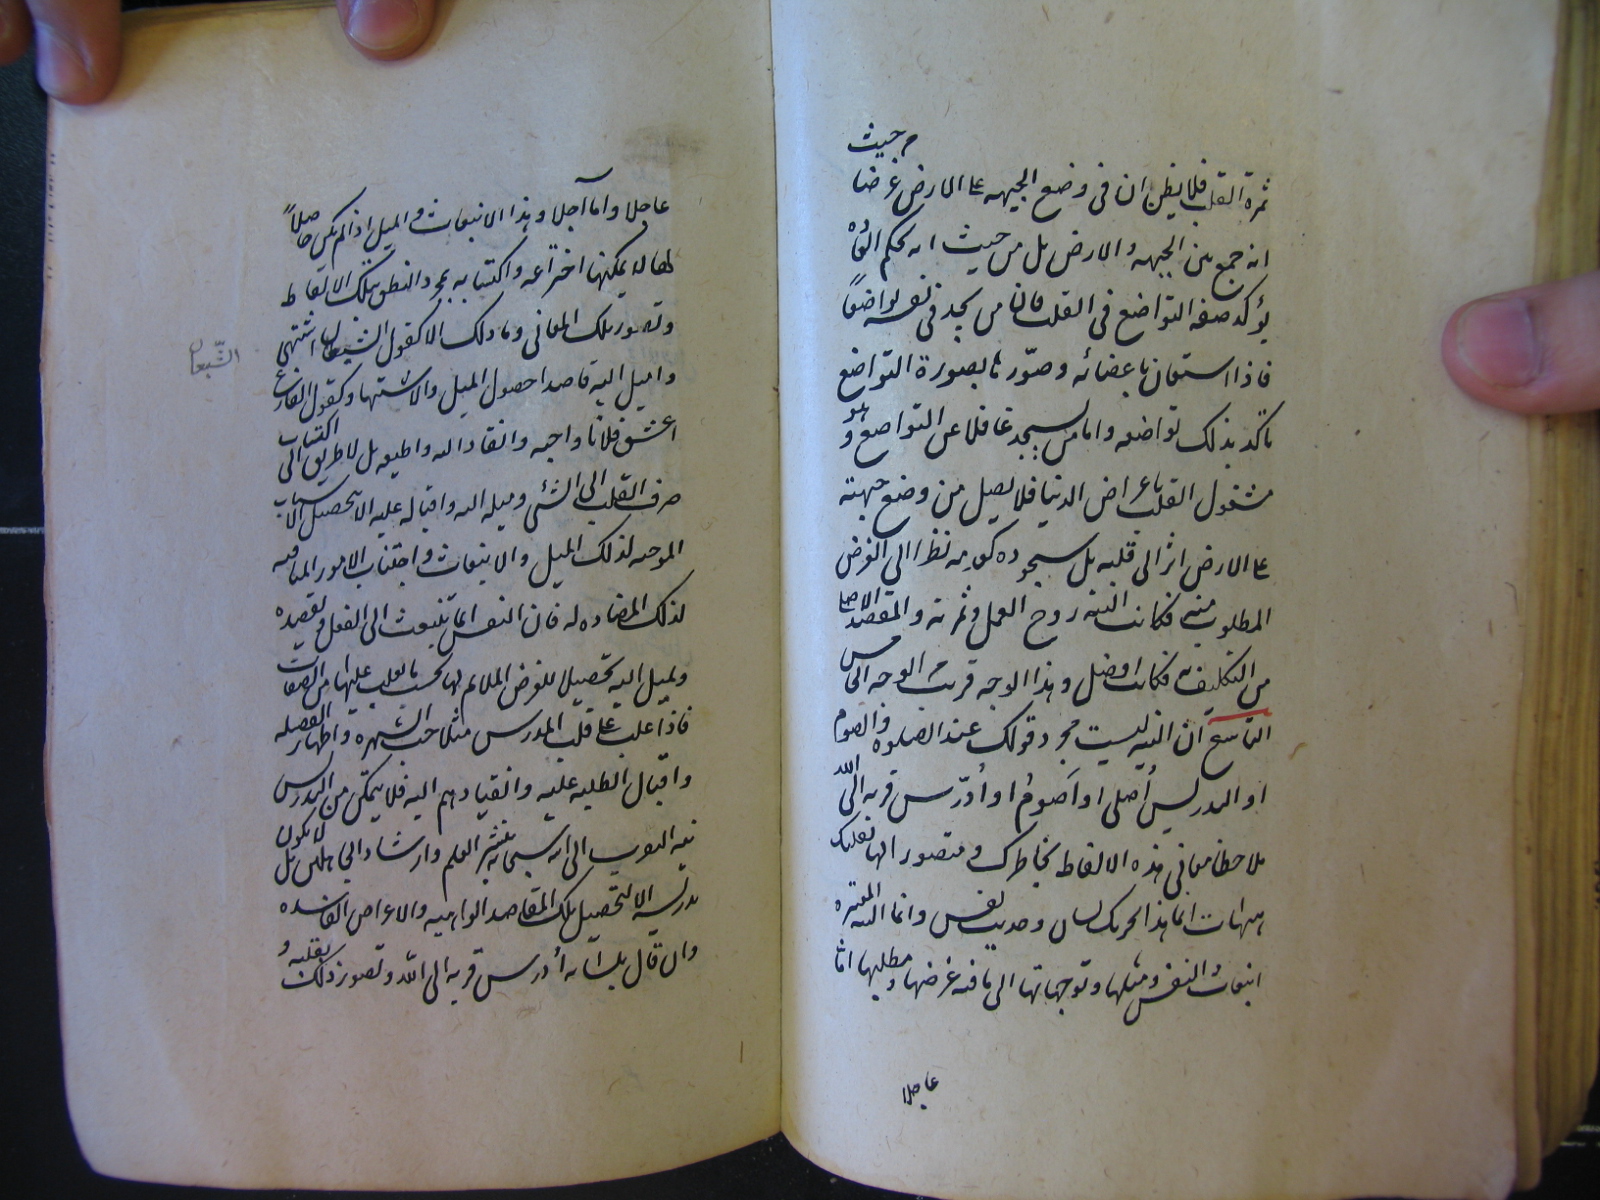 ثمرة القلب فلا يظن ان فى وضع الجبهه على الارض غرضا من حيث
انه جمع بين الجبهه والارض بل من حيث انه بحكم العاده
يؤكد صفة التواضع فى القلب فان من يجد فى نفسه تواضعًا
فاذا استعان باعضائه وصوّرها بصورة التواضع
تاكد بذلك تواضعه واما من يسجد غافلا عن التواضع وهو
مشغول القلب باعراض الدنيا فلا يصل من وضع جبهته
على الارض اثر الى قلبه بل سجوده كعدمه نظرا الى الغرض
المطلوب منه فكانت النيه روح العمل وثمرته والمقصد الاصلى
من التكليف به فكانت افضل وهذا الوجه قريب من الوجه الخامس
التاسع ان النيه ليست مجرد قولك عند الصلوه والصوم
او التدريس أصلى او أصوم او أدرّس قربه الى الله
ملاحظا معانى هذه الالفاظ بخاطرك ومتصورا لها بقلبك
هيهات انما هذا تحريك لسان وحديث نفس وانما النيه المعتبره
انبعاث النفس وميلها وتوجهاتها الى ما فيه غرضها ومطلبها امّا
عاجلا
عاجلا واما آجلا وهذا الانبعاث والميل اذا لم يكن حاصلاً
لها لا يمكنها اختراعه واكتسابه بمجرد النطق بتلك الالفاظ
وتصور تلك المعانى وما ذلك الا كقول الشبعان اشتهى
الشّبعان
واميل اليه قاصدا حصول الميل والاشتهاء وكقول الفارغ
اعشق فلانا واحبه وانقاد اليه واطيعه بل لا طريق الى اكتساب
صرف القلب الى الشئ وميله اليه واقباله عليه الا بتحصيل الاسباب
الموجبه لذلك الميل والانبعاث واجتناب الامور المنافيه
لذلك المضاده له فان النفس انما تنبعث الى الفعل وتقصده
وتميل اليه تحصيلا للغرض الملائم لها بحسب ما يغلب عليها من الصفات
فاذا غلب على قلب المدرس مثلا حب الشهره واظهار الفضيله
واقبال الطلبه عليه وانقيادهم اليه فلا يتمكن من التدريس
بنيه التقرب الى الله سبحانه بنشر العلم وارشاد الجاهلين بل لا يكون
تدريسه الا لتحصيل تلك المقاصد الواهيه والاغراض الفاسده
وان قال بلسانه أدرس قربه الى الله وتصور ذلك بقلبه و